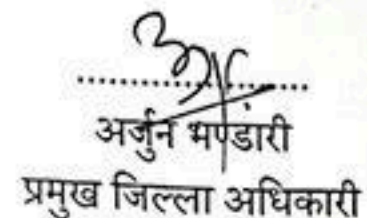 अर्जुन भण्डारी
प्रमुख जिल्ला अधिकारी